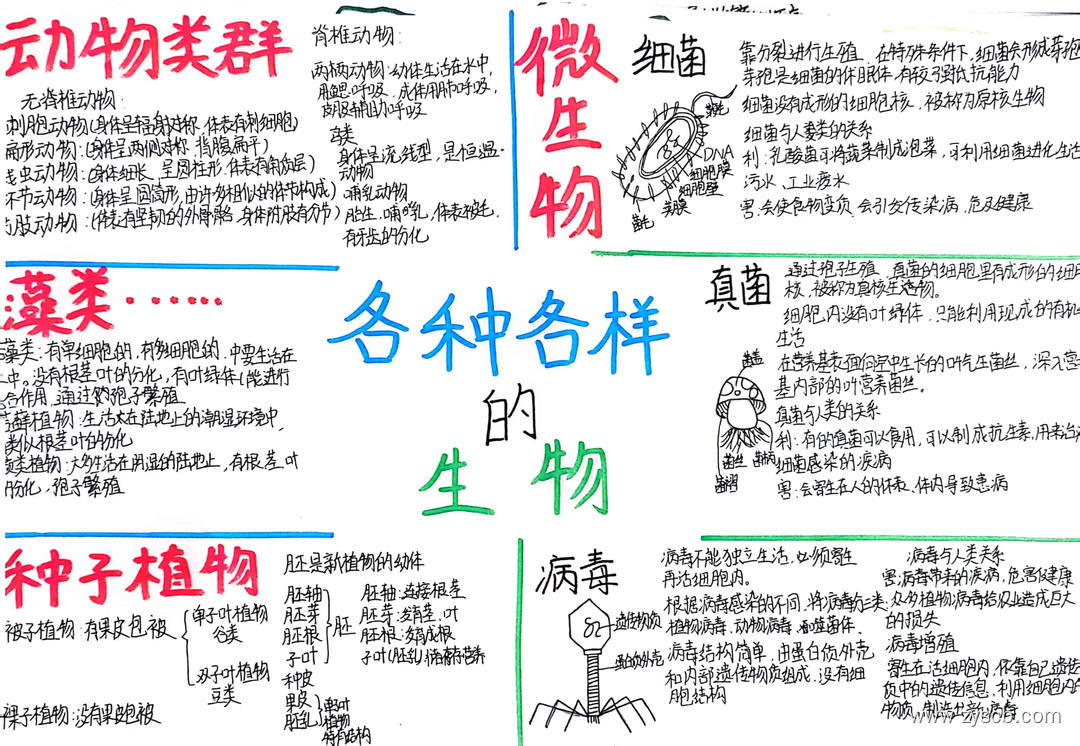 动物类群
无脊椎动物:
刺胞动物(身体呈辐射对称、体表有刺细胞)
扁形动物:(身体呈两侧对称,背腹扁平)
虫动物:(身体细长,呈圆柱形,体表有角质层)
环节动物:(身体呈圆筒形,由许多相似的体节构成)
肢动物:(体表有坚韧的外骨骼,身体附肢有分节)
脊椎动物:
两栖动物:幼体生活在水中,
用鳃呼吸,成体用肺呼吸,
皮肤辅助呼吸
鸟类
身体呈流线型,是恒温
动物
哺乳动物
胎生,哺乳,体表被毛,
有牙齿的分化
微生物
细菌
靠分裂进行生殖,在特殊条件下,细菌会形成芽孢
芽孢是细菌的休眠体,有较强抵抗能力
细菌没有成形的细胞核,被称为原核生物
细菌与人类的关系
利:乳酸菌可将蔬菜制成泡菜,可利用细菌净化生活
污水、工业废水
害:会使食物变质,会引发传染病,危及健康
鞭毛
DNA
细胞膜
细胞壁
荚膜
藻类……
藻类:有单细胞的,有多细胞的,中要生活在
中。没有根茎叶的分化,有叶绿体(能进行
合作用,通过孢子繁殖
苔藓植物:生活在陆地上的潮湿环境中,
类似根茎叶的分化
类植物:大多生活在阴湿的陆地上,有根茎叶
的分化,孢子繁殖
各种各样
的
生物
真菌
通过孢子生殖,真菌的细胞里有成形的细胞
核,被称为真核生物。
细胞内没有叶绿体,只能利用现成的有机
生活
在营养基表面向空中生长的叫气生菌丝,深入营
基内部的叫营养菌丝。
真菌与人类的关系
利:有的真菌可以食用,可以制成抗生素,用来治
细菌感染的疾病
害:会寄生在人的体表、体内导致患病
菌盖
菌丝
菌柄
菌褶
种子植物
被子植物:有果皮包被
单子叶植物
谷类
双子叶植物
豆类
裸子植物:没有果皮包被
胚是新植物的幼体
胚轴
胚芽
胚根
子叶
胚
胚轴:连接根茎
胚芽:发育茎、叶
胚根:发育成根
子叶(胚乳)储存营养
种皮
果皮
胚乳
单叶
植物
特有结构
病毒
病毒不能独立生活,必须寄生
再活细胞内。
根据病毒感染的不同,将病毒分三类:
植物病毒、动物病毒、噬菌体。
病毒结构简单,由蛋白质外壳
和内部遗传物质组成,没有细
胞结构
遗传物质
蛋白质外壳
病毒与人类关系
害:病毒带来的疾病,危害健康
众多植物病毒给农业造成巨大
的损失
病毒增殖
寄生在活细胞内,依靠自己遗传
质中的遗传信息,利用细胞内的
物质,制造出新病毒
www.zyscb.com